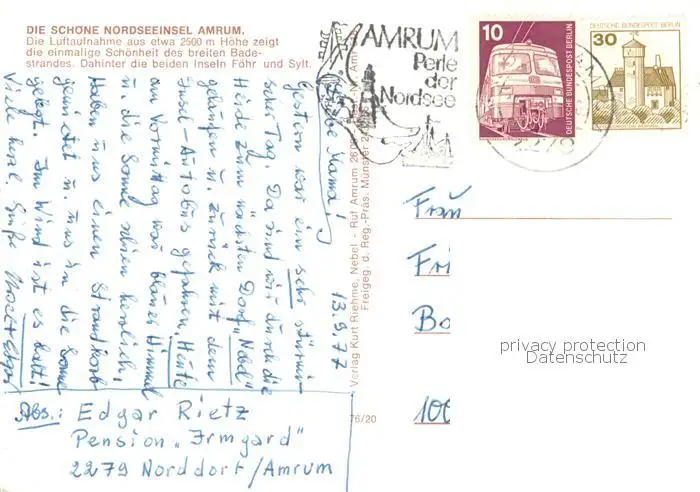 DIE SCHÖNE NORDSEEINSEL AMRUM.
Die Luftaufnahme aus etwa 2500 m Höhe zeigt
die einmalige Schönheit des breiten Bade-
strandes. Dahinter die beiden Inseln Föhr und Sylt.
AMRUM
Perle
der
Nordsee
10
DEUTSCHE BUNDESPOST BERLIN
DEUTSCHE BUNDESPOST BERLIN
30
13.9.77
Liebe Mama!
Gestern war ein sehr stürmi-
scher Tag. Da sind wir durch die
Heide zum nächsten Dorf „Nebel"
gelaufen u. zurück mit dem
Insel-Autobus gefahren. Heute
am Vormittag war blauer Himmel
u. die Sonne schien herrlich.
Haben uns einen Strandkorb
gemietet u. uns in die Sonne
gelegt. Im Wind ist es kalt!
Viele herzl. Grüße
Verlag Kurt Riehme, Nebel - Ruf Amrum
Freigeg. d. Reg.-Präs. Münster
76/20
Frau
Fri
Bo
100
privacy protection
Datenschutz
Abs.: Edgar Rietz
Pension „Irmgard"
2279 Norddorf/Amrum